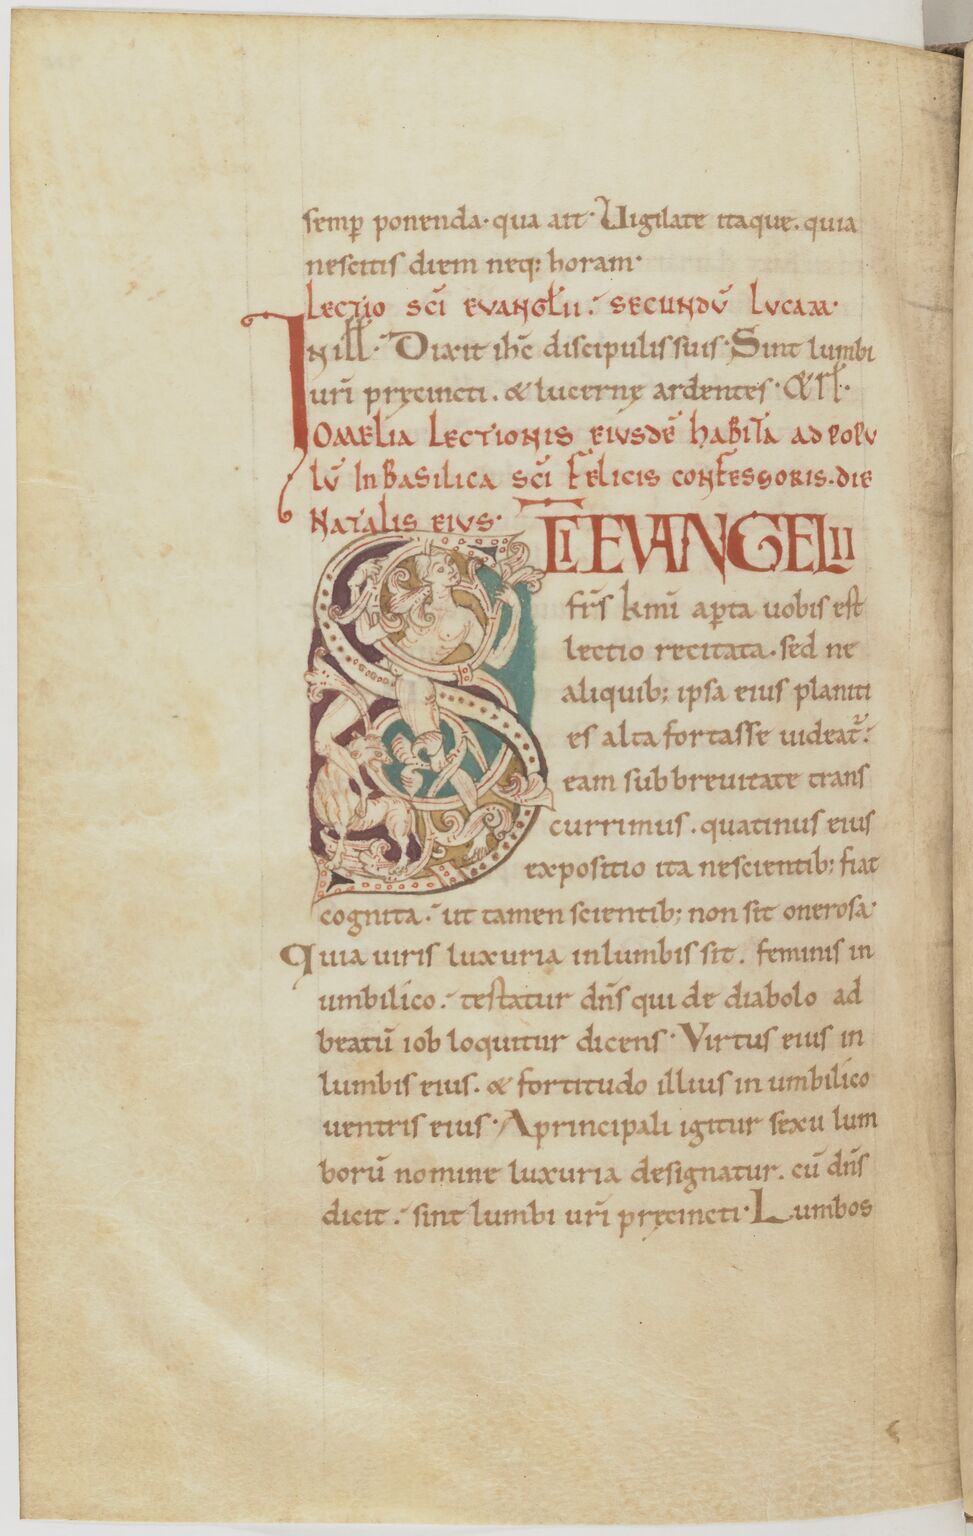 semp̄ ponenda· qua ait· Uigilate itaque. quia
nescitis diem neq; horam·
Lectio sc̄i evangl̄ii. secundū Lucam·
In ill̄. Dixit ih̄c discipulis suis· Sint lumbi
ur̄i pręcincti. & lucernę ardentes· & rl̄.
Omelia Lectionis eiusdē habita ad popu
lū In Basilica sc̄i Felicis confessoris. die
Natalis eius·
SC̄I EVANGELII
fr̄s km̄i ap̄ta uobis est
lectio recitata. sed ne
aliquib; ipsa eius planiti
es alta fortasse uideat̄.
eam sub breuitate trans
currimus. quatinus eius
expositio ita nescientib; fiat
cognita. ut tamen scientib; non sit onerosa·
Quia uiris luxuria in lumbis sit. feminis in
umbilico. testatur dn̄s qui de diabolo ad
beatū iob loquitur dicens· Virtus eius in
lumbis eius. & fortitudo illius in umbilico
uentris eius· A principali igitur sexu lum
borū nomine luxuria designatur. cū dn̄s
dicit. sint lumbi ur̄i pręcincti· Lumbos